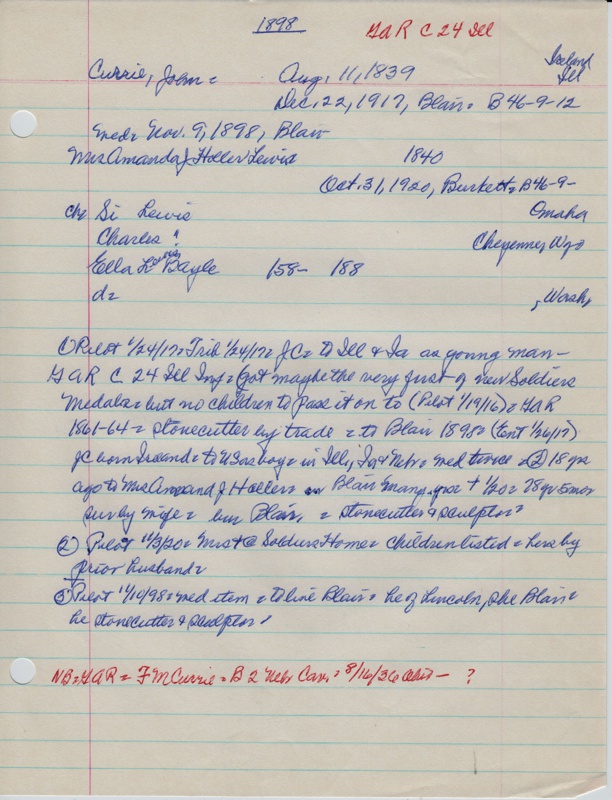 1898
GAR C 24 Ill
Ireland
Ill
Currie, John = Aug. 11, 1839
Dec. 22, 1917, Blair = B 46-9-12
med = Nov. 9, 1898, Blair
Mrs Amanda J Holler Lewis 1840
Oct. 31, 1920, Burkett = B46-9-
ch = Si Lewis Omaha
Charles " Cheyenne, Wyo
Ella Lewis Bayle 158- 188
d = , Wash,
① Pilot 1/24/17 = Trib 1/24/17 = JC = to Ill & Ia as young man -
GAR C 24 Ill Inf = Got maybe the very first of new Soldiers
Medals = but no children to pass it on to (Pilot 1/19/16) = GAR
1861-64 = stonecutter by trade = to Blair 1898 = (Ent 1/26/17)
JC born Ireland = to US as boy = in Ill, Ia & Nebr = med twice = ② 18 yrs
ago to Mrs Amanda J Holler = Blair many yrs + 1/20 = 78 yr 5 mos
surv by wife = bur Blair, = stonecutter & sculptor =
② Pilot 11/3/20 = Mrs + @ Soldiers Home = children listed = hers by
prior husband =
③ Pilot 11/10/98 = med item = to live Blair = he of Lincoln, she Blair =
he stonecutter & sculptor =
NB = GAR = F M Currie = B 2 Nebr Cav = 8/16/36 Obit - ?